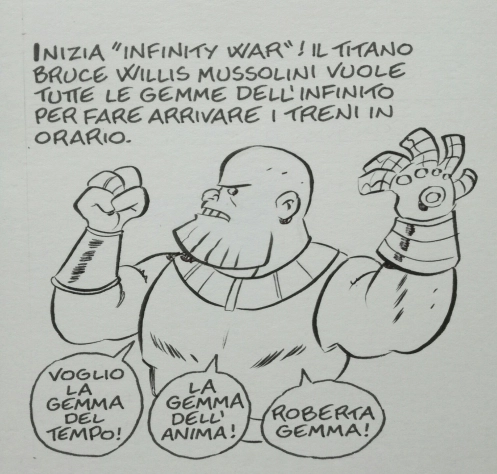 INIZIA "INFINITY WAR"! IL TITANO
BRUCE WILLIS MUSSOLINI VUOLE
TUTTE LE GEMME DELL'INFINITO
PER FARE ARRIVARE I TRENI IN
ORARIO.
VOGLIO
LA
GEMMA
DEL
TEMPO!
LA
GEMMA
DELL'
ANIMA!
ROBERTA
GEMMA!